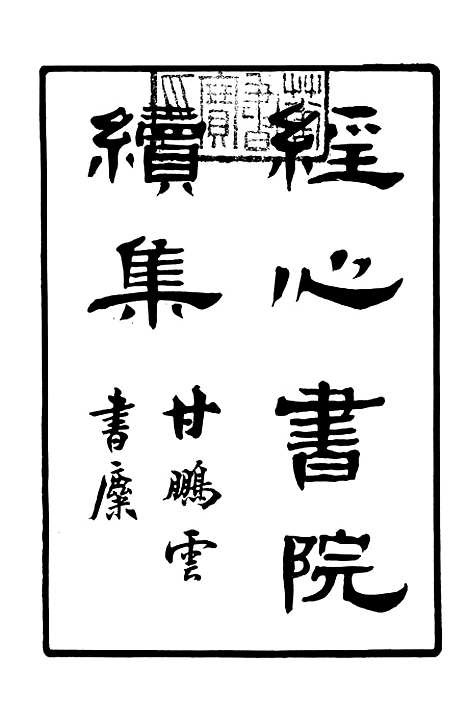 經心書院
續集
甘鵬雲
書檢